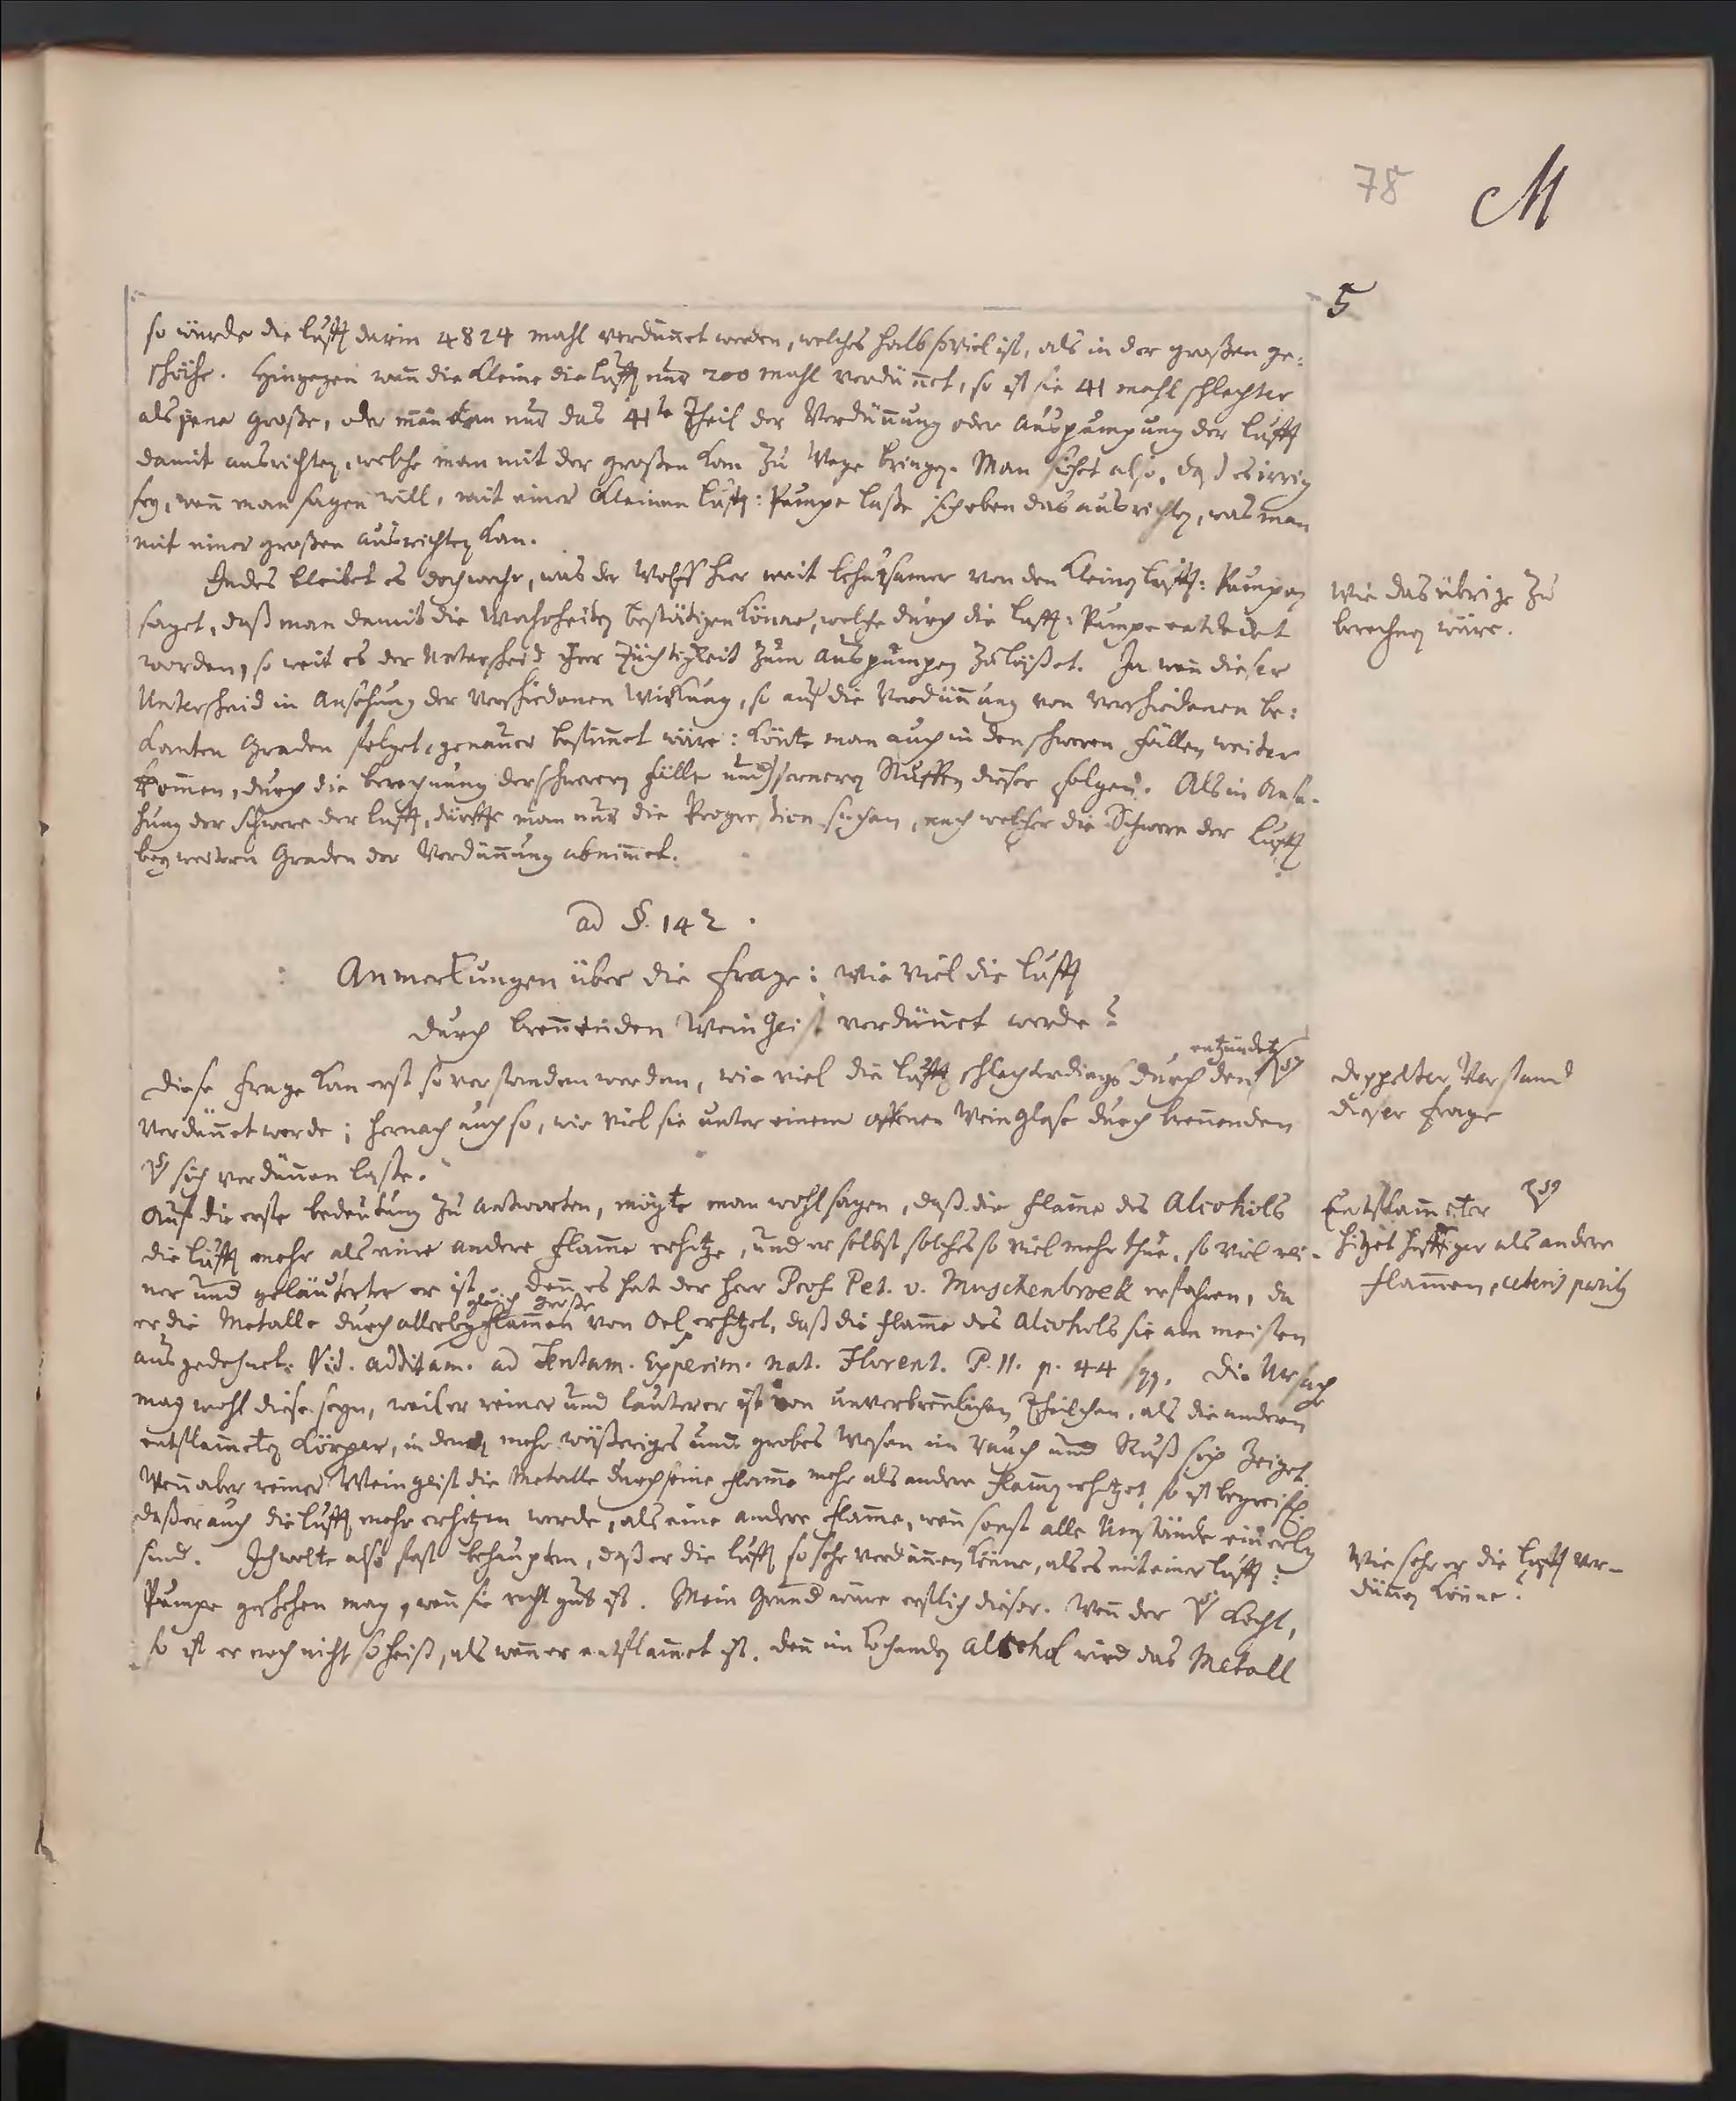 78 M
5
so würde die Lufft darin 4824 mahl verdünnet werden, welches halb so viel ist, als in der großen ge:
schähe. Hingegen wenn die Kleine die Lufft nur 200 mahl verdünnet, so ist sie 41 mahl schlechter
als jene große, oder man kan nur das 41te Theil der Verdünnung oder Auspumpung der Lufft
damit ausrichten, welche man mit der großen kan zu Wege bringen. Man siehet also, daß es irrig
sey, wenn man sagen will, mit einer kleinen Lufft: Pumpe laße sich eben das ausrichten, was man
mit einer großen ausrichten kan.
Indes bleibet es doch wahr, was der Wolff hier weit behutsamer von den kleinen Lufft: Pumpen
saget, daß man damit die Wahrheiten bestätigen könne, welche durch die Lufft: Pumpe entdecket
worden, so weit es der Unterscheid ihrer Tüchtigkeit zum auspumpen zuläßet. Ja wenn dieser
Unterscheid in Ansehung der verschiedenen Wirkung, so auf die Verdünnung von verschiedenen be:
kanten Graden folget, genauer bestimmet wäre: könte man auch in den schweren Fällen weiter
kommen, durch die berechnung der schweren Fälle und ferneren Stuffen dieser folgen. Als in Anse-
hung der Schwere der Lufft, dürffte man nur die Progression suchen, nach welcher die Schwere der Lufft
bey weitern Graden der Verdünnung abnimmet.
Wie das übrige zu
berechnen wäre.
ad §. 142.
Anmerkungen über die Frage: wie viel die Lufft
durch brennenden Weingeist verdünnet werde?
entzündeten
Diese Frage kan erst so verstanden werden, wie viel die Lufft schlechterdings durch den
verdünnet werde; hernach auch so, wie viel sie unter einem offenen Weinglase durch brennenden
sich verdünnen laße.
Doppelter Verstand
dieser Frage
Auf die erste bedeutung zu antworten, mögte man wohl sagen, daß die Flamme des Alcohols
die Lufft mehr als eine andere Flamme erhitze, und er selbst solches so viel mehr thue, so viel rei-
ner und geläuterter er ist. Denn es hat der Herr Prof. Pet. v. Muschenbroek erfahren, da
gleich große
er die Metalle durch allerley Flammen von Oel erhitzet, daß die Flamme des Alcohols sie am meisten
ausgedehnet. Vid. additam. ad Tentam. Experim. nat. Florent. P. II. p. 44 sqq. Die Ursach
mag wohl diese seyn, weil er reiner und lauterer ist von unverbrennlichen Theilchen, als die andern
entflammeten Körper, in denen mehr wäßeriges und grobes Wesen im Rauch und Ruß sich zeiget.
Wenn aber reiner Weingeist die Metalle durch seine Flamme mehr als andere Flammen erhitzet, so ist begreiflich
daß er auch die Lufft mehr erhitzen werde, als eine andere Flamme, wenn sonst alle Umstände einerley
sind. Ich wolte also fast behaupten, daß er die Lufft so sehr verdünnen könne, als es mit einer Lufft:
Pumpe geschehen mag, wenn sie recht gut ist. Mein Grund wäre erstlich dieser. Wenn der kocht,
so ist er noch nicht so heiß, als wenn er entflammet ist. Denn im kochenden Alcohol wird das Metall
Entflammeter
hitzet hefftiger als andere
Flammen, ceteris paribus
Wie sehr er die Lufft ver-
dünnen könne?